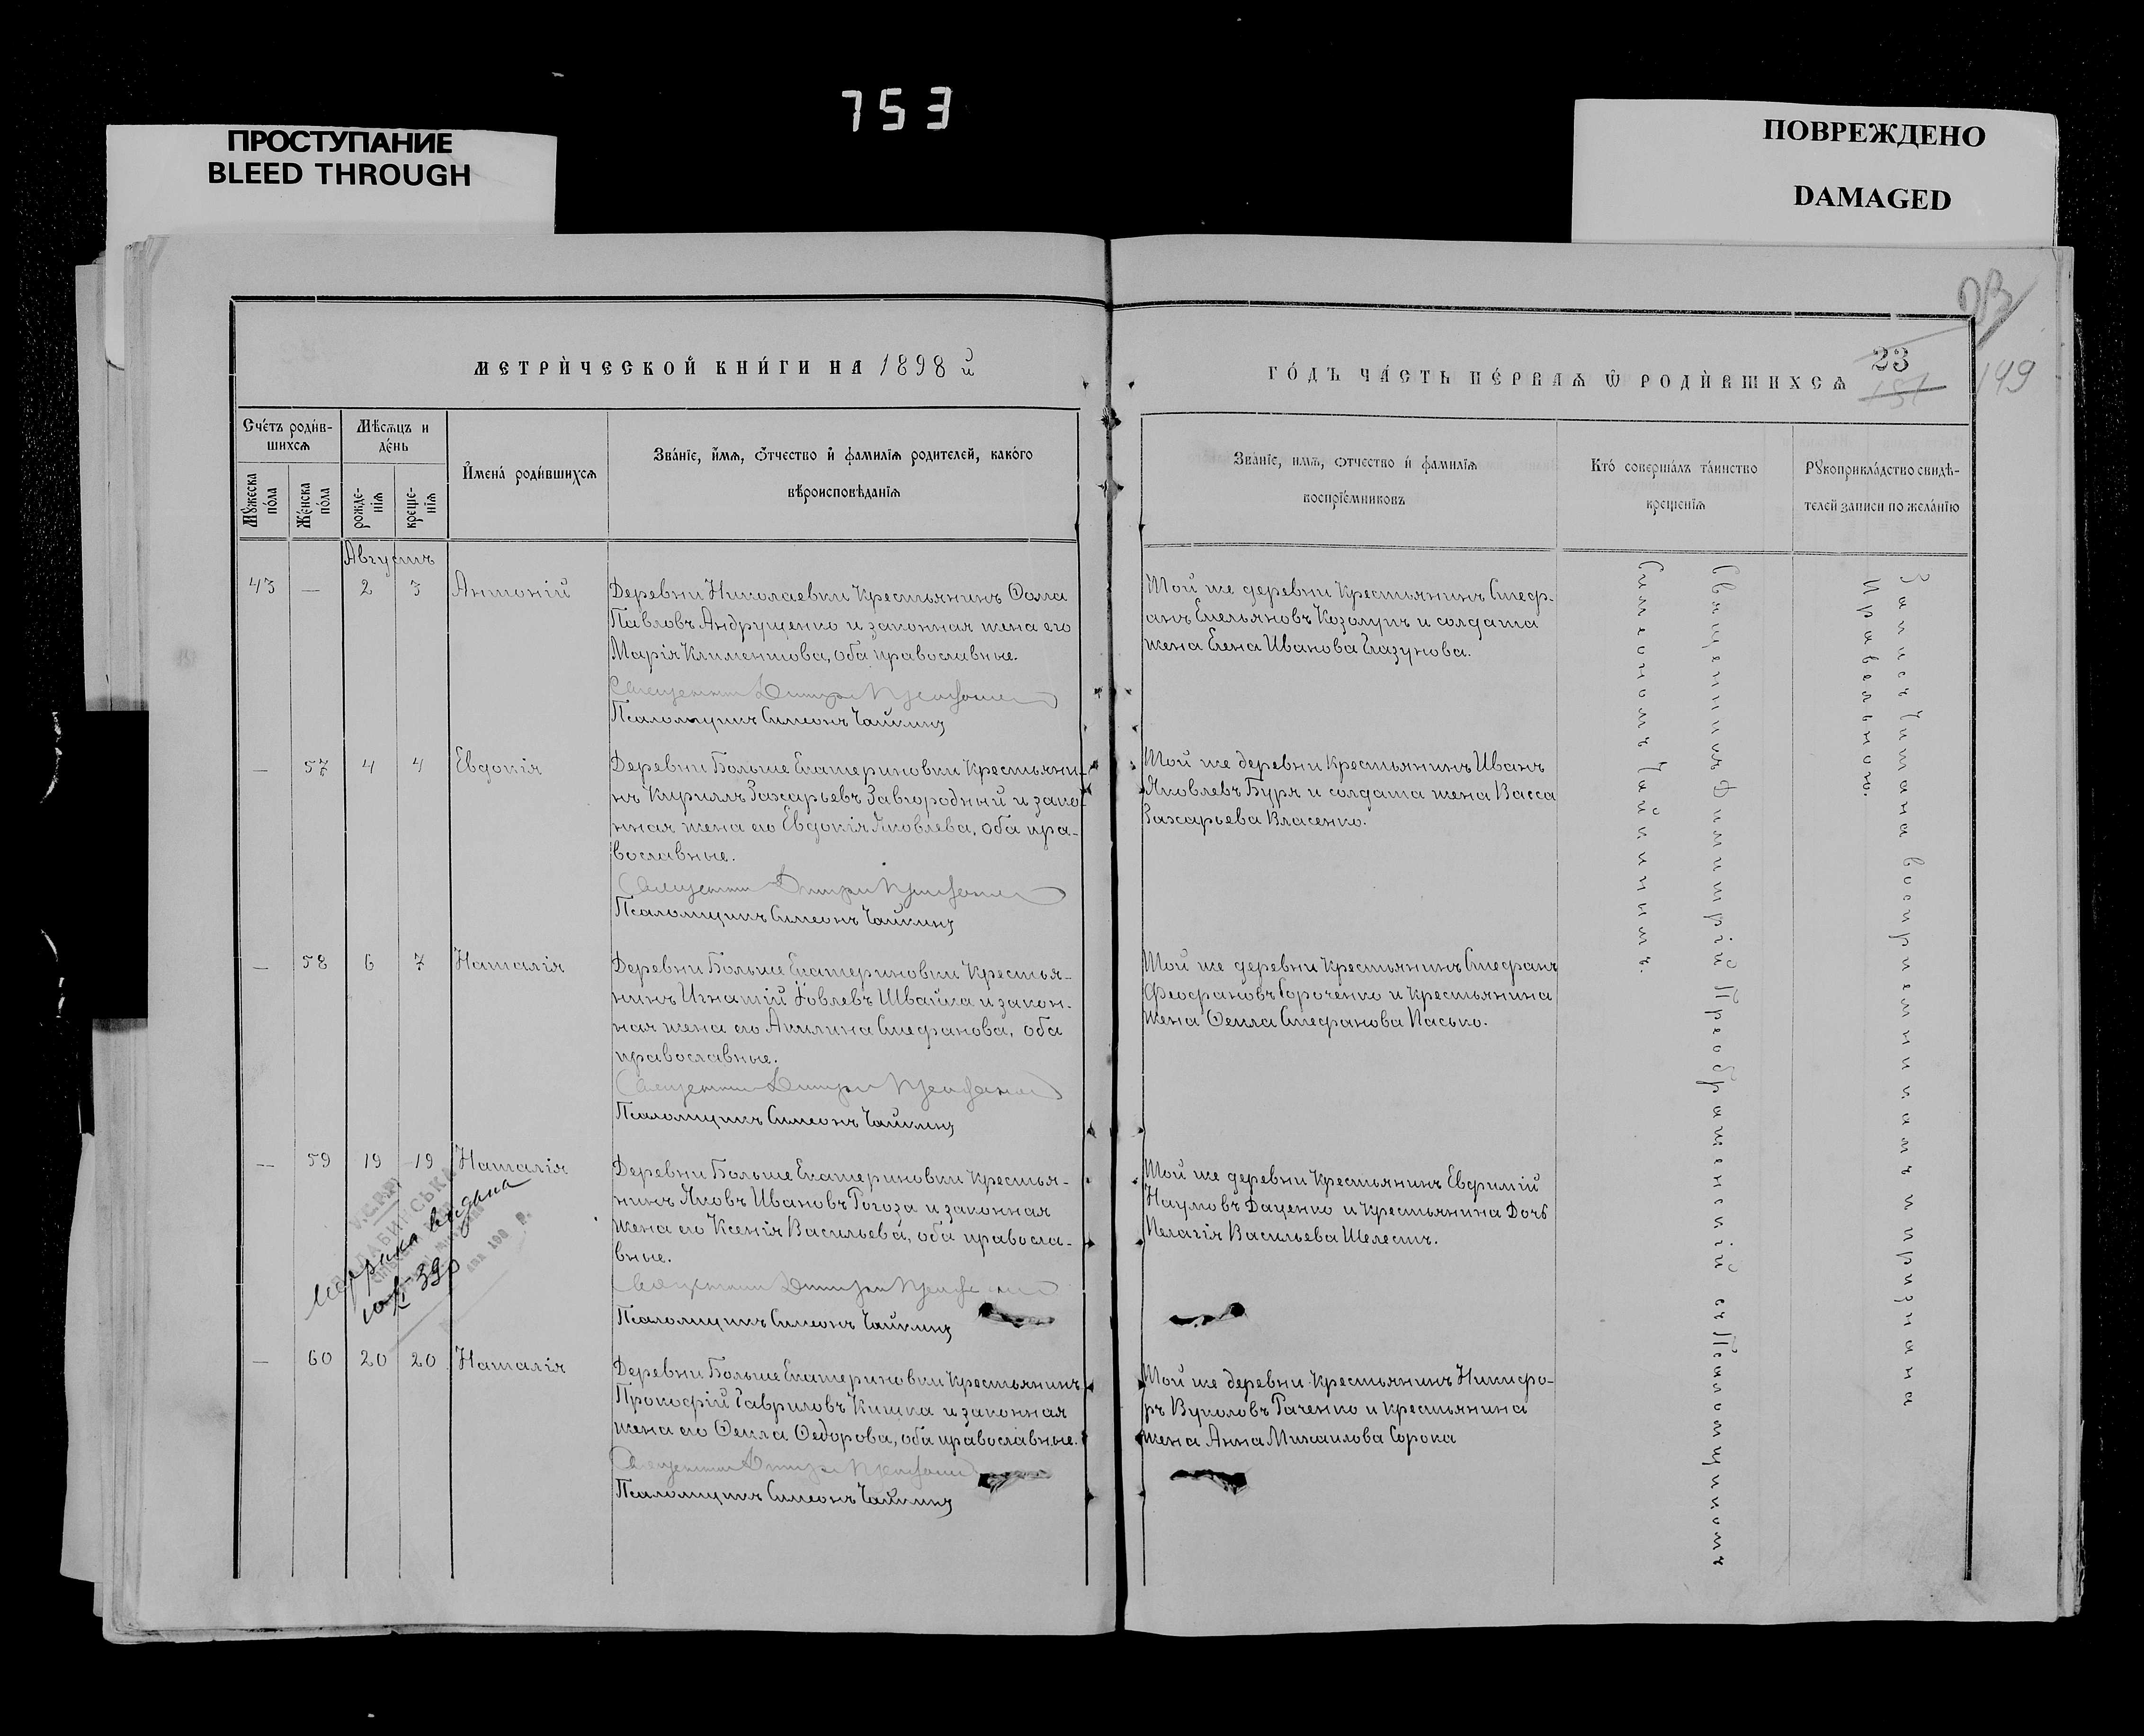 753
ПРОСТУПАНИЕ
BLEED THROUGH
ПОВРЕЖДЕНО
DAMAGED
МЕТРИ́ЧЕСКОЙ КНИ́ГИ НА 1898 й
ГО́ДЪ ЧА́СТЬ ПЕ́РВАѦ Ѿ РОДИ́ВШИХСѦ
23
149
Сче́тъ роди́в-
шихсѧ
Мѣ́сѧцъ и
де́нь
Мꙋжеска
по́ла
Же́нска
по́ла
рожде-
нїѧ
креще-
нїѧ
И҆мена̀ роди́вшихсѧ
Зва́нїе, и҆́мѧ, ѻ҆́тчество и҆ фами́лїѧ роди́телей, како́го
вѣроисповѣ́данїѧ
Зва́нїе, и҆́мѧ, ѻ҆́тчество и҆ фами́лїѧ
воспрїе́мниковъ
Кто̀ соверша́лъ та́инство
креще́нїѧ
Рꙋкоприкла́дство свидѣ́-
телей за́писи по жела́нїю
Августъ
43 — 2 3 Антоній
Деревни Николаевки крестьянинъ Ѳома
Павловъ Андрущенко и законная жена его
Марія Климентова, оба православные.
Священникъ Димитрій Преображенскій
Псаломщикъ Симеонъ Чайкинъ
Той же деревни крестьянинъ Стеф-
анъ Емельяновъ Козолупъ и солдата
жена Елена Иванова Глазунова.
— 57 4 4 Евдокія
Деревни Больше Екатериновки крестьяни-
нъ Кириллъ Захарьевъ Завгородный и зако-
нная жена его Евдокія Яковлева, оба пра-
вославные.
Священникъ Димитрій Преображенскій
Псаломщикъ Симеонъ Чайкинъ
Той же деревни крестьянинъ Иванъ
Яковлевъ Буря и солдата жена Васса
Захарьева Власенко.
— 58 6 7 Наталія
Деревни Больше Екатериновки крестья-
нинъ Игнатій Іовлевъ Швайка и закон-
ная жена его Акилина Стефанова, оба
православные.
Священникъ Димитрій Преображенскій
Псаломщикъ Симеонъ Чайкинъ
Той же деревни крестьянинъ Стефанъ
Феофановъ Гороченко и крестьянина
жена Ѳекла Стефанова Пасько.
— 59 19 19 Наталія
Деревни Больше Екатериновки крестья-
нинъ Яковъ Ивановъ Рогоза и законная
жена его Ксенія Васильева, оба правосла-
вные.
Священникъ Димитрій Преображенскій
Псаломщикъ Симеонъ Чайкинъ
Той же деревни крестьянинъ Евфимій
Наумовъ Даценко и крестьянина дочь
Пелагія Васильева Шелестъ.
метрика выдана
390
— 60 20 20 Наталія
Деревни Больше Екатериновки крестьянинъ
Прокофій Гавриловъ Кишка и законная
жена его Ѳекла Ѳедорова, оба православные.
Священникъ Димитрій Преображенскій
Псаломщикъ Симеонъ Чайкинъ
Той же деревни крестьянинъ Никифо-
ръ Вуколовъ Раченко и крестьянина
жена Анна Михаилова Сорока
Священникъ Димитрій Преображенскій съ Псаломщикомъ
Симеономъ Чайкинымъ.
Запись читана воспріемникамъ и признана
правильною.